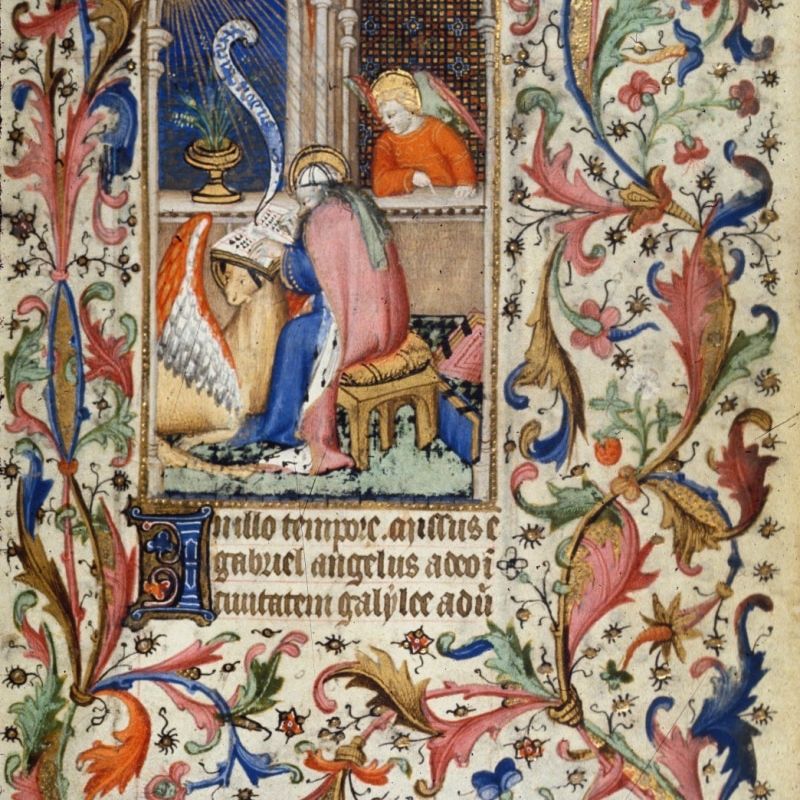 In illo tempore. missus e
gabriel angelus a deo i
ciuitatem galylee ad ũ